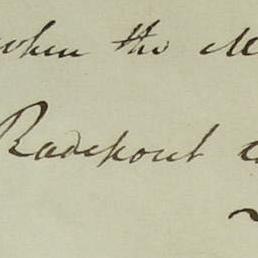 when the M
Radepont